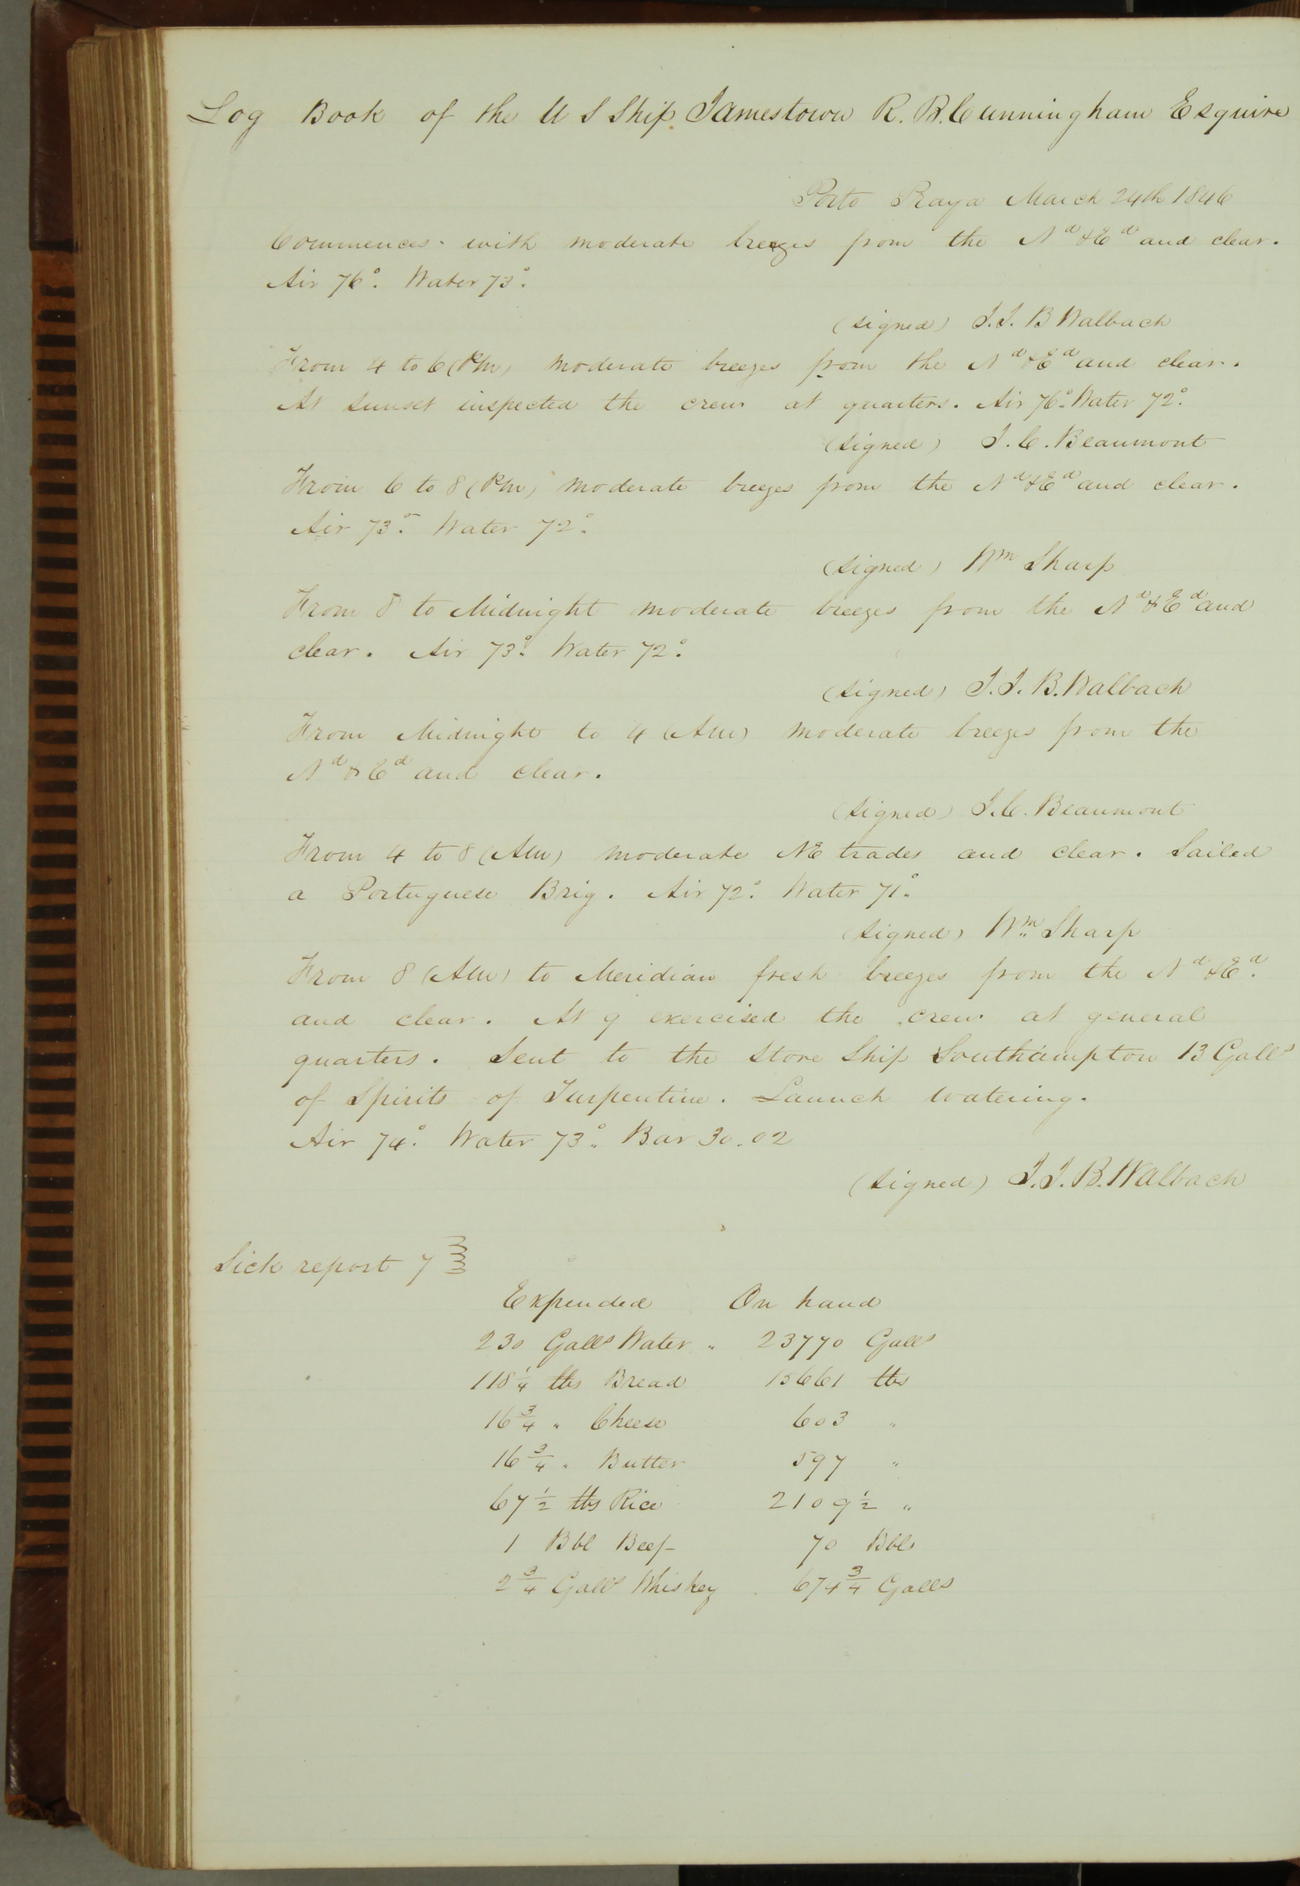 Log Book of the U S Ship Jamestown R. B. Cunningham Esquire
Porto Praya March 24th 1846
Commences with moderate breezes from the Nd & Ed and clear.
Air 76°. Water 73°.
(signed) J. J. B Walbach
From 4 to 6 (PM) moderate breezes from the Nd & Ed and clear.
At sunset inspected the crew at quarters. Air 76°. Water 72°.
(signed) J. C. Beaumont
From 6 to 8 (PM) moderate breezes from the Nd & Ed and clear.
Air 73°. Water 72°.
(signed) Wm Sharp
From 8 to Midnight moderate breezes from the Nd & Ed and
clear. Air 73°. Water 72°.
(signed) J. J. B. Walbach
From Midnight to 4 (AM) moderate breezes from the
Nd & Ed and clear.
(signed) J. C. Beaumont
From 4 to 8 (AM) moderate NE trades and clear. Sailed
a Portuguese Brig. Air 72°. Water 71°.
(signed) Wm Sharp
From 8 (AM) to Meridian fresh breezes from the Nd & Ed.
and clear. At 9 exercised the crew at general
quarters. Sent to the Store Ship Southampton 13 Galls
of Spirits of Turpentine. Launch watering.
Air 74°. Water 73°. Bar 30.02
(signed) J. J. B. Walbach
Sick report 7
Expended On hand
230 Galls Water " 23770 Galls
118 1/4 lbs Bread 13661 lbs
16 3/4 " Cheese 603 "
16 3/4 " Butter 597 "
67 1/2 lbs Rice 2109 1/2 "
1 Bbl Beef 70 Bbls
2 3/4 Galls Whiskey 674 3/4 Galls